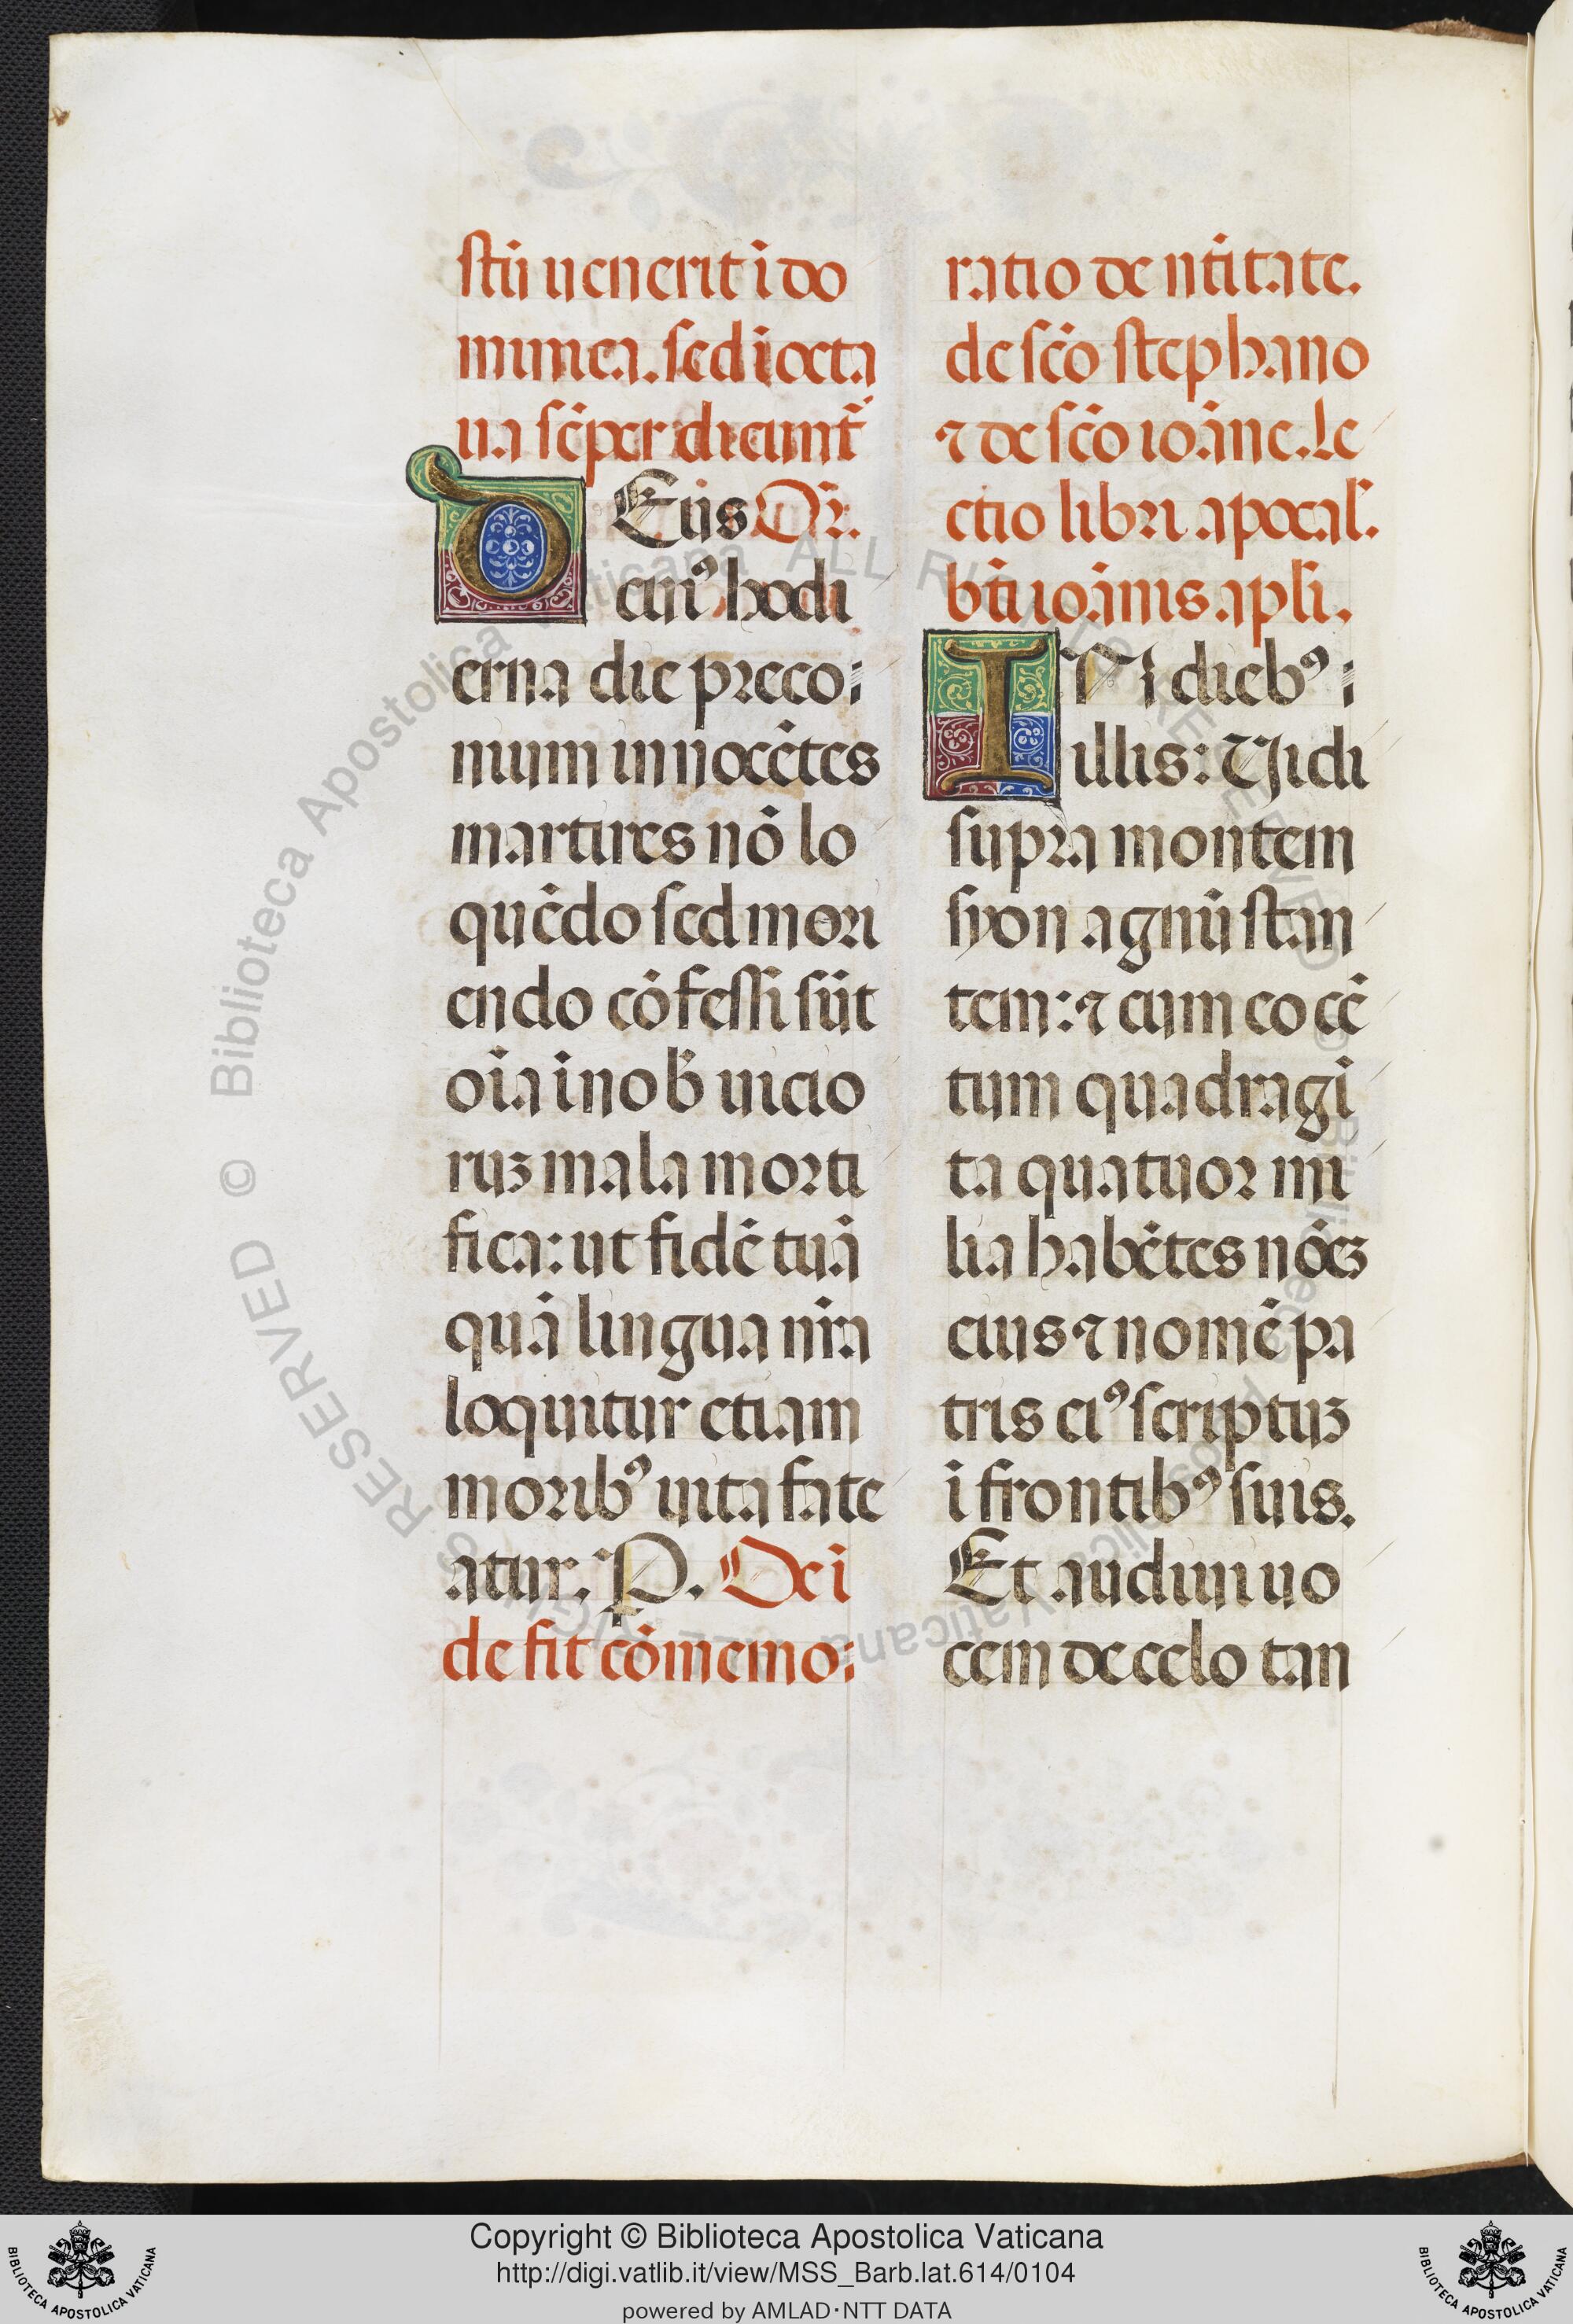 stū uenerit ī do
minica. sed ī octa
ua sēper dicunt̄
DEus Or̄.
cui⁹ hodi
erna die preco:
nium innocētes
martires nō lo
quēdo sed mori
endo cōfessi sūt
oīa ī nob̄ uicio
ruꝫ mala morti
fica: ut fidē tuā
quā lingua nr̄a
loquitur etiam
morib⁹ uita fate
atur. P. Dei
de fit cōmemo:
ratio de nt̄itate.
de sc̄o stephano
⁊ de sc̄o ioāne. Le
ctio libri apocal̄.
bt̄i ioānis apl̄i.
IN dieb⁹ :
illis: Uidi
supra montem
syon agnū stan
tem: ⁊ cum eo cē
tum quadragī
ta quatuor mi
lia habētes nōeꝫ
eius ⁊ nomē pa
tris ei⁹ scriptuꝫ
ī frontib⁹ suis.
Et audiui uo
cem de celo tan
Copyright © Biblioteca Apostolica Vaticana
http://digi.vatlib.it/view/MSS_Barb.lat.614/0104
powered by AMLAD·NTT DATA
BIBLIOTECA APOSTOLICA VATICANA
BIBLIOTECA APOSTOLICA VATICANA